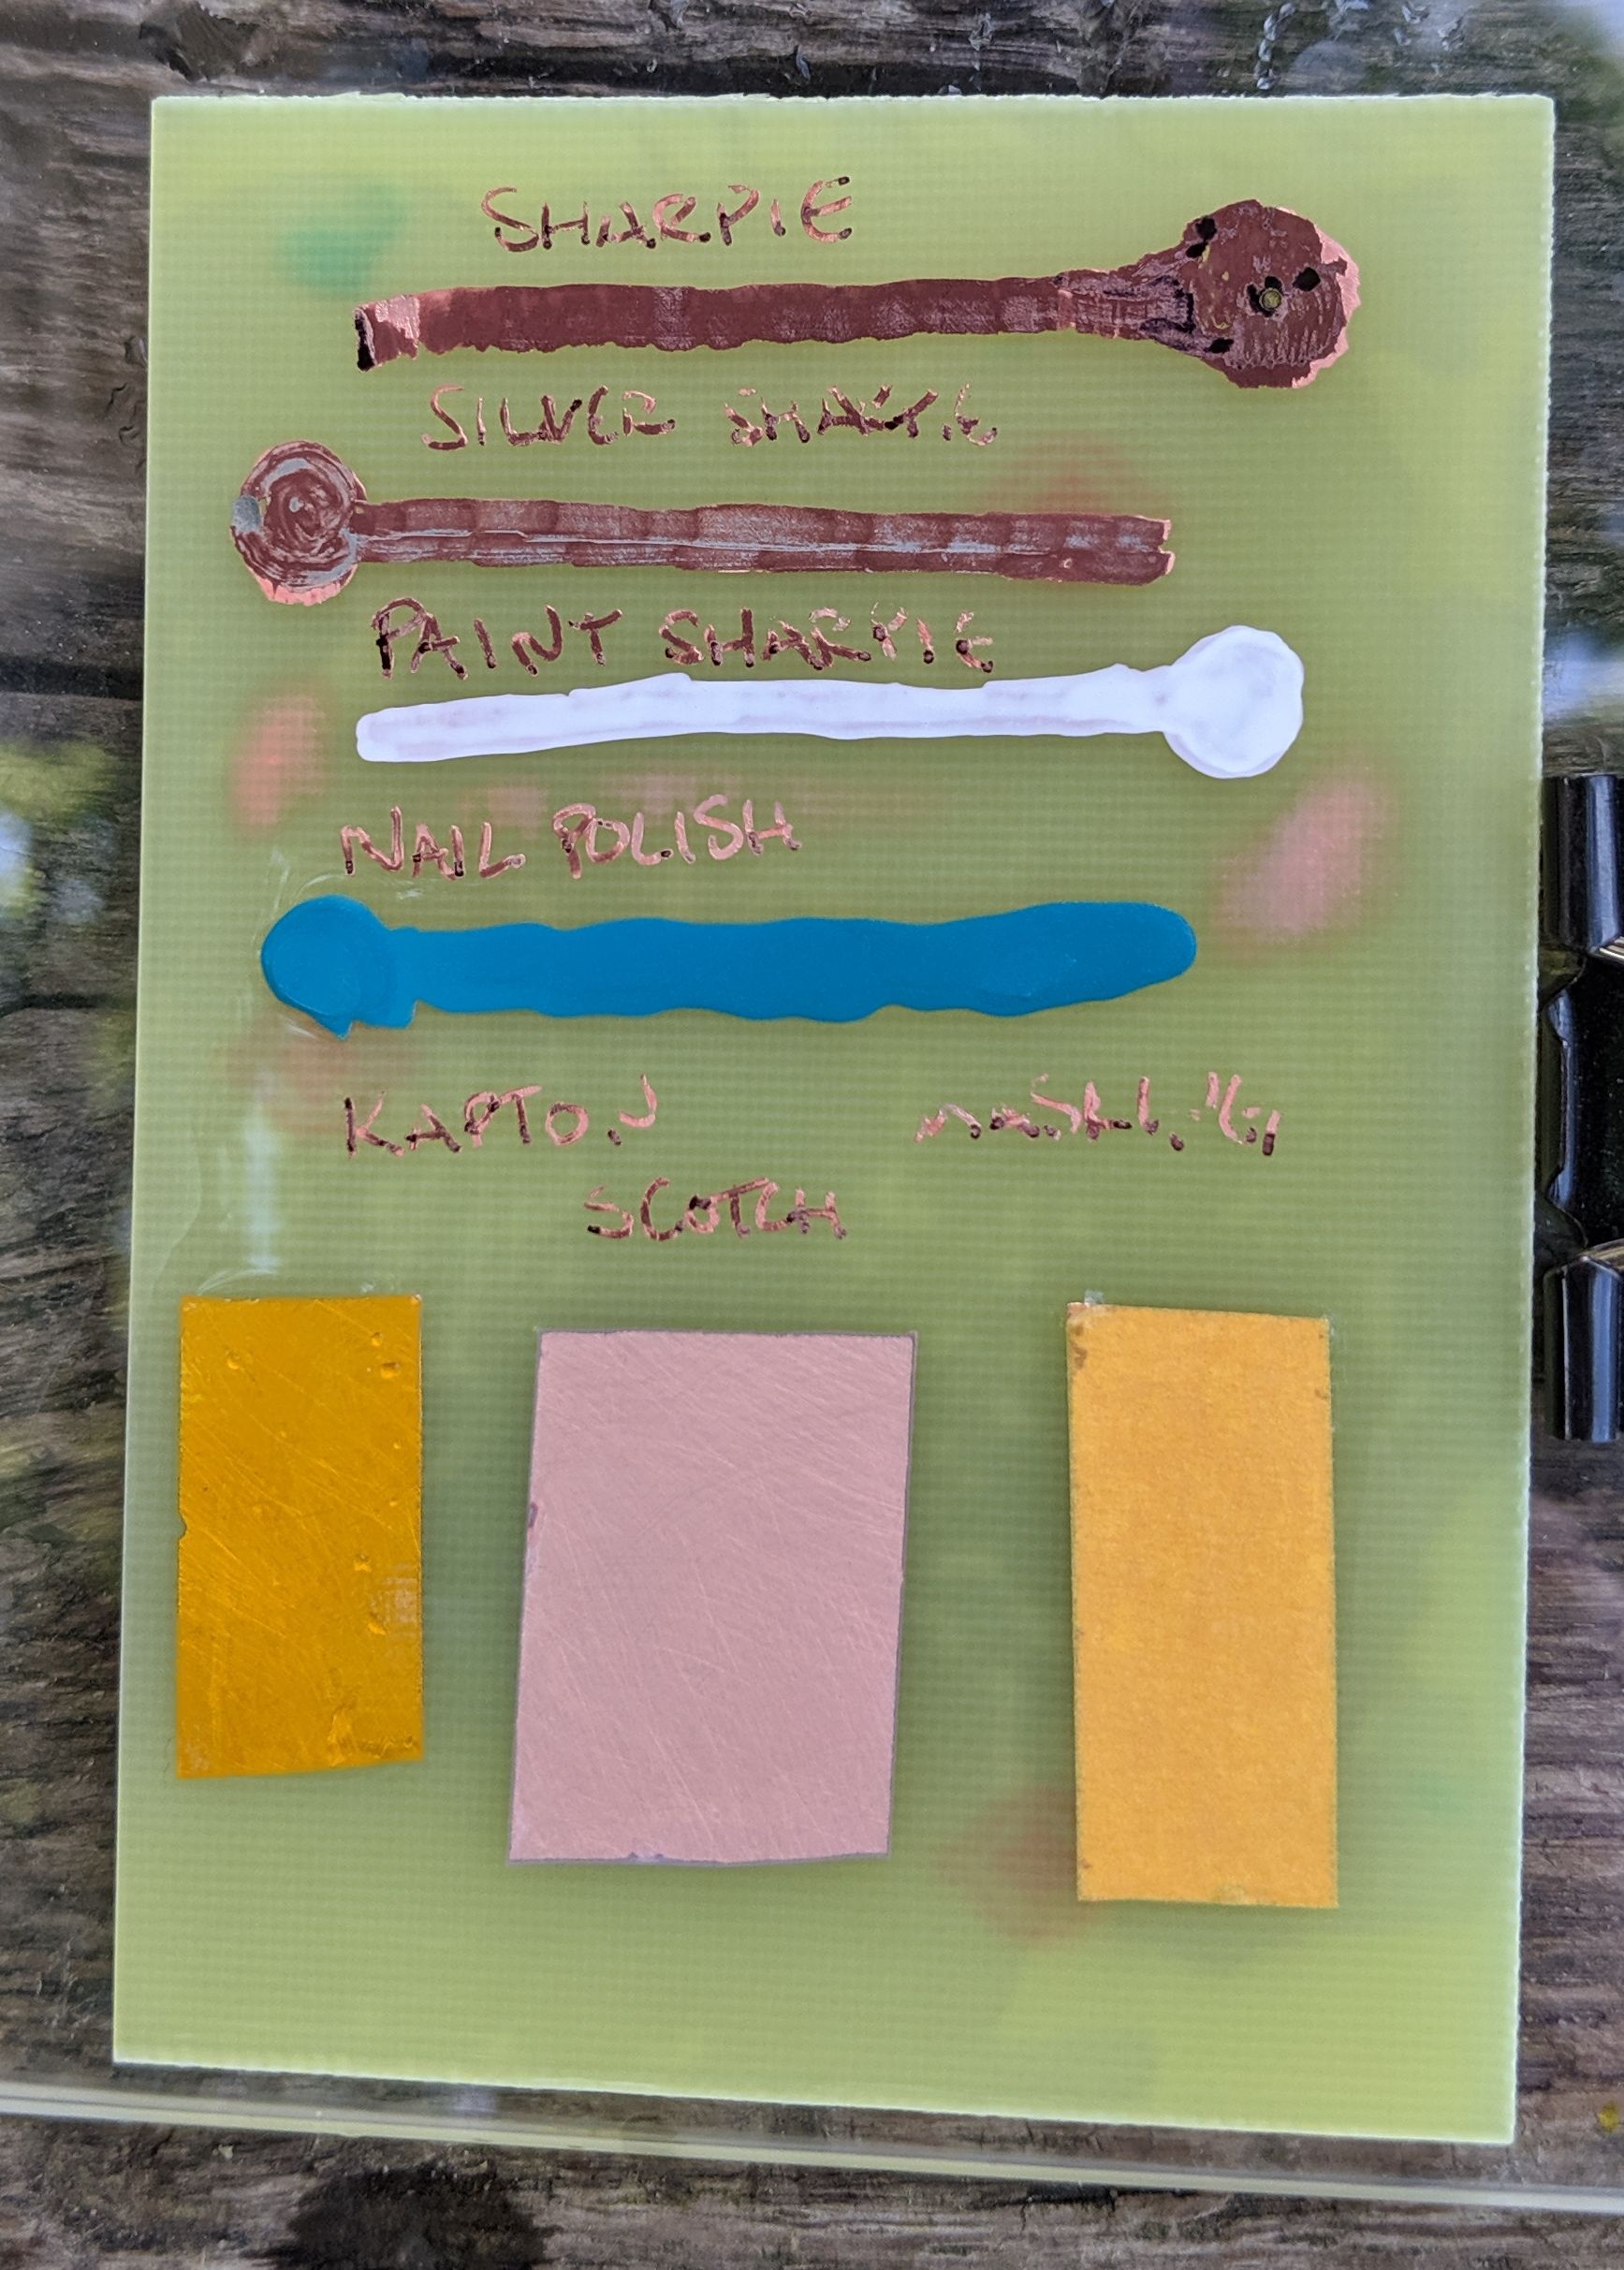 SHARPIE
SILVER SHARPIE
PAINT SHARPIE
NAIL POLISH
KAPTON masking
SCOTCH